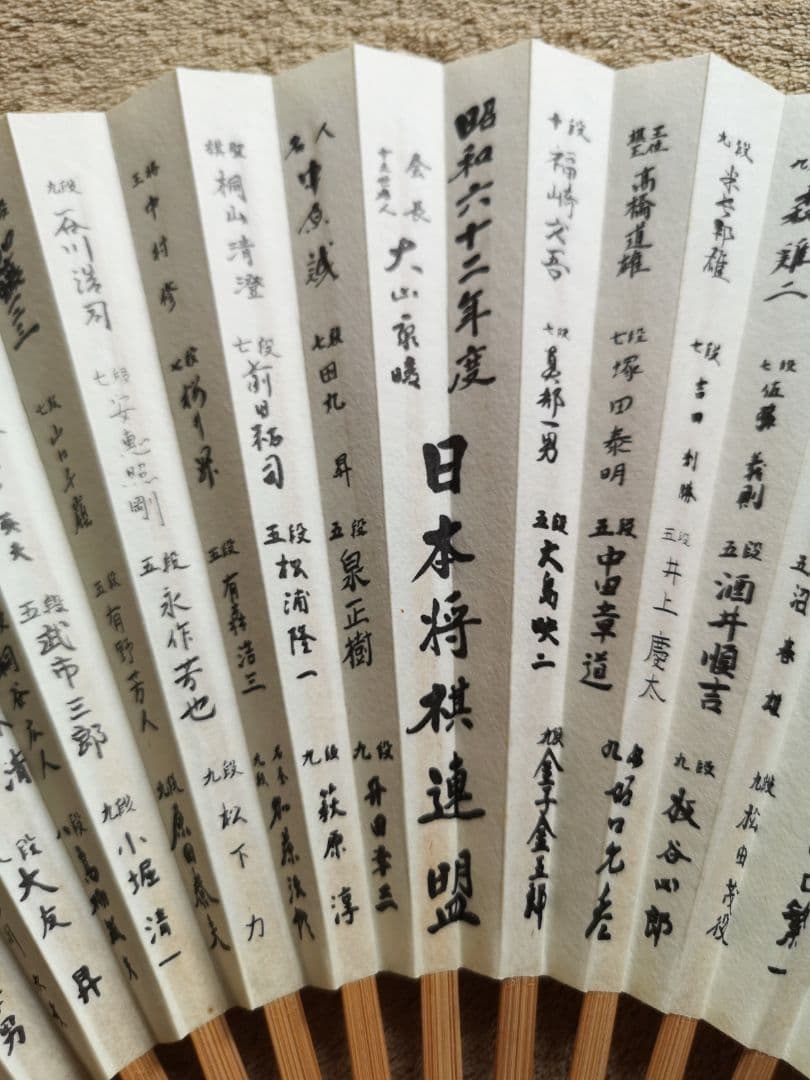 森雞二
七段 佐藤義則
五 沼春雄
九段 松田茂役
九段 米長邦雄
七段 吉田利勝
五段 酒井順吉
五段 井上慶太
九段 板谷四郎
王位 棋王 高橋道雄
七段 塚田泰明
五段 中田章道
九段 坂口允彦
十段 福崎文吾
七段 真部一男
五段 大島映二
九段 金子金五郎
昭和六十二年度
日本将棋連盟
会長 十五世名人 大山康晴
名人 中原誠
七段 田丸昇
五段 泉正樹
九段 升田幸三
棋聖 桐山清澄
七段 前田祐司
五段 松浦隆一
九段 萩原淳
王将 中村修
七段 桜井昇
五段 有森浩三
名誉九段 加藤治郎
九段 谷川浩司
七段 安恵照剛
五段 永作芳也
九段 松下力
七段 山口千嶺
五段 有野芳人
九段 原田泰夫
五段 武市三郎
九段 小堀清一
八段
段 大友昇